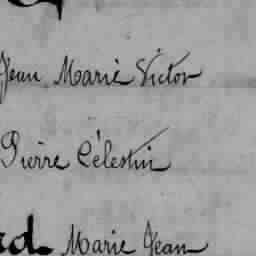 Jean Marie Victor
Pierre Célestin
rd Marie Jean